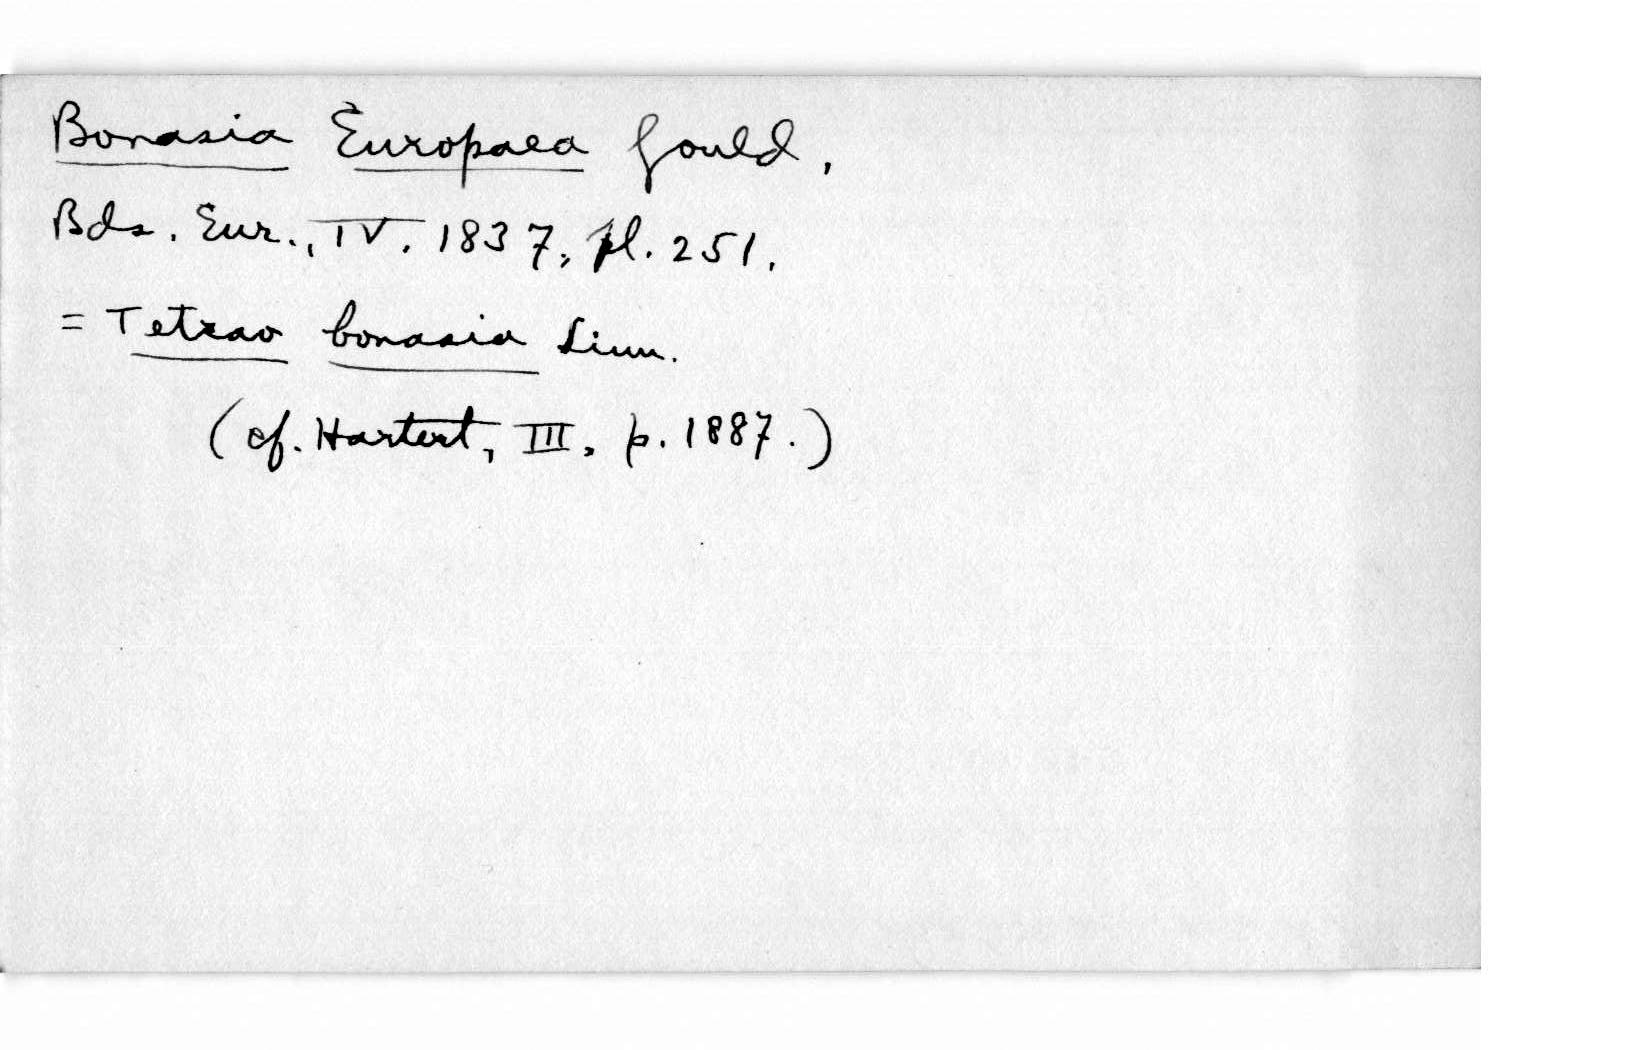 Bonasia Europaea Gould,
Bds. Eur., IV. 1837, pl. 251.
= Tetrao bonasia Linn.
(cf. Hartert, III, p. 1887.)